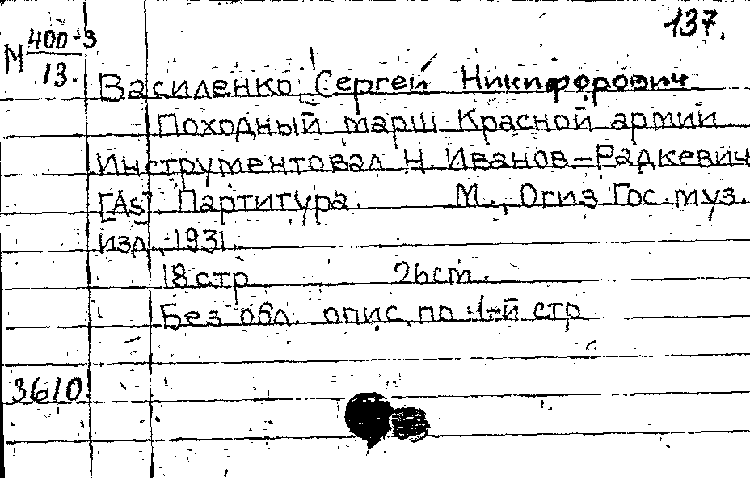 137.
М 400-3
13.
Василенко Сергей Никифорович
Походный марш Красной армии
Инструментовал Н. Иванов-Радкевич
[As] Партитура. М., Огиз Гос. муз.
изд. 1931.
18 стр. 26 cm.
Без обл. опис. по 1-й стр
3610